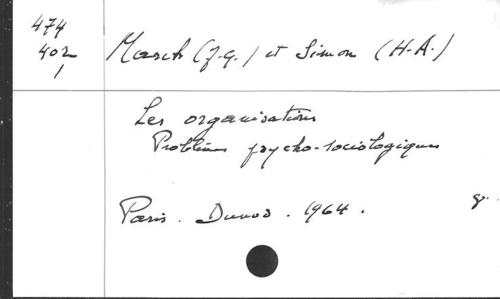 474
402
1
March (J.G.) et Simon (H.A.)
Les organisations
Problèmes psycho-sociologiques
Paris. Dunod. 1964.